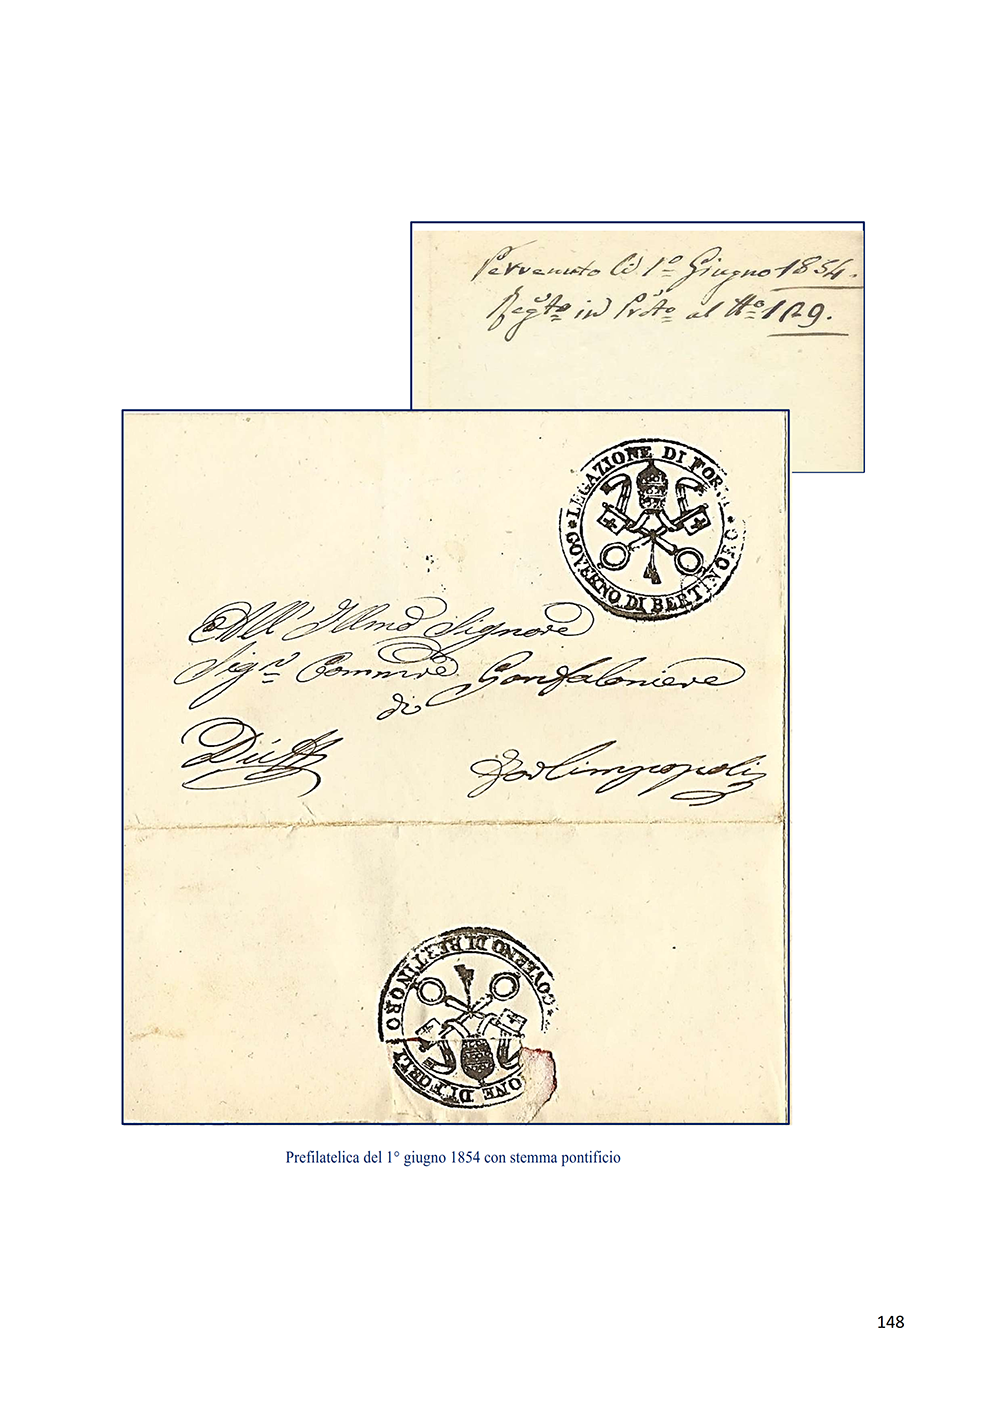 Pervenuto li 1º Giugno 1854.
Regto in Prot.º al Nº 129.
LEGAZIONE DI FORLI
* GOVERNO DI BERTINORO *
All' Illmo Signore
Sigr Commre Gonfaloniere
di
Forlimpopoli
GOVERNO DI BERTINORO
ONE DI FORLI
Prefilatelica del 1° giugno 1854 con stemma pontificio
148